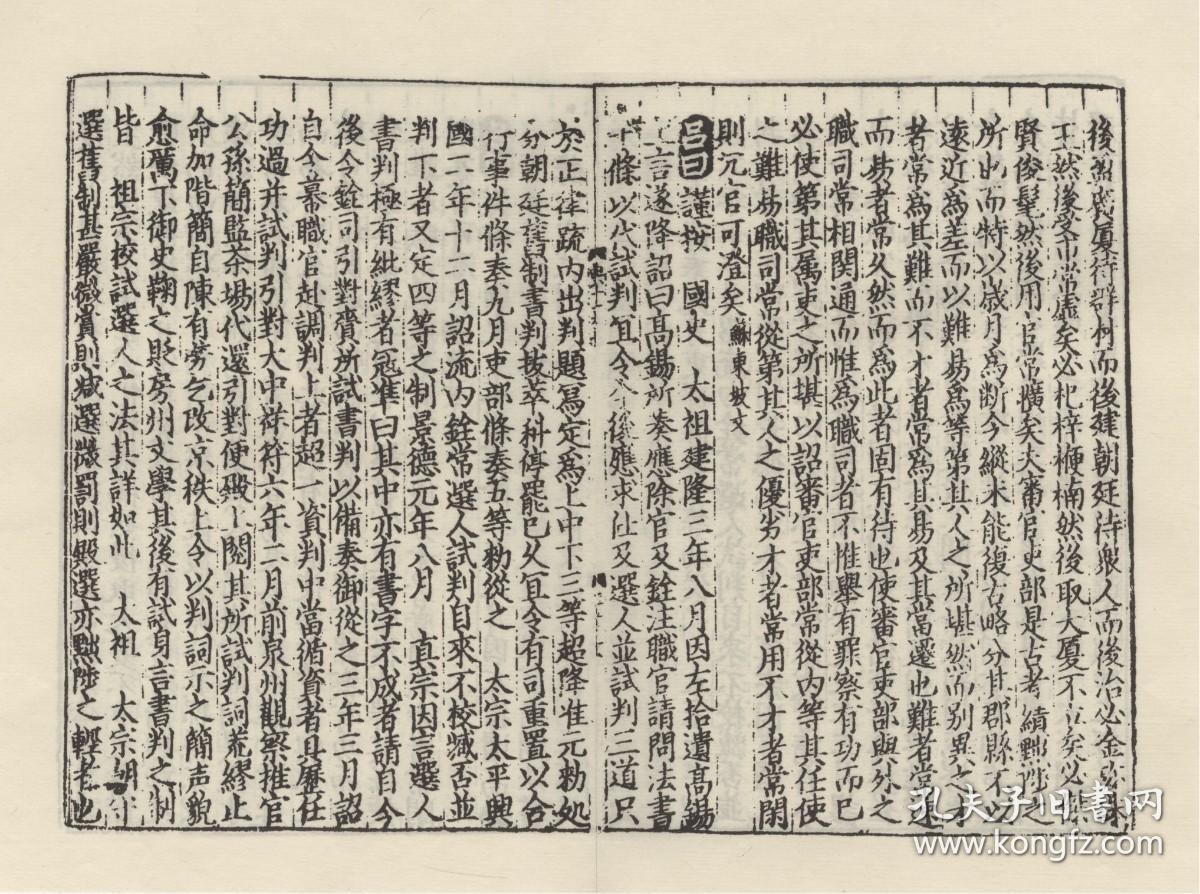 後勲爵厦待群材而後建朝廷待衆人而後治必金
工然後受市常虛矣必杞梓楩楠然後取大厦不
賢俊髦然後用官常懭矣大審官吏部是古考績黜陟之
所也而特以歲月爲断今縱未能復古略分其郡縣不以
遠近爲差而以難易爲等第其人之所堪然而別異之才
者常爲其難而不才者常爲其易及其當遷也難者常速
而易者常久然而爲此者固有待也使審官吏部與外之
職司常相関通而惟爲職司者不惟舉有罪察有功而已
必使第其属吏之所堪以詔審官吏部常從内等其任使
之難易職司常從第其人之優劣才者常用不才者常閑
則冗官可澄矣 蘇東坡文
吕曰謹按 國史 太祖建隆三年八月因左拾遺髙錫
上言遂降詔曰髙錫所奏應除官及銓注職官請問法書
十條以代試判冝令今後應求仕及選人並試判三道只
於正律疏内出判題爲定爲上中下三等超降准元勑処
分朝廷舊制書判拔萃科停罷已久冝令有司重置以合
行事件條奏九月吏部條奏五等勑從之 太宗太平興
國二年十二月詔流内銓常選人試判自來不校臧否並
判下者又定四等之制景德元年八月 真宗因言選人
書判極有紕繆者冦凖曰其中亦有書字不成者請自今
後令銓司引對賫所試書判以備奏御從之三年三月詔
自今幕職官赴調判上者超一資判中當循資者具歷任
功過并試判引對大中祥符六年二月前泉州觀察推官
公孫簡監茶場代還引對便殿上閱其所試判詞荒繆止
命加階簡自陳有勞乞改京秩上令以判詞示之簡声貌
愈厲下御史鞠之貶房州文學其後有試身言書判之制
皆 祖宗校試選人之法其詳如此 太祖 太宗朝
選舊制甚嚴微賞則减選微罰則殿選亦黜陟之輕者也
孔夫子旧书网
www.kongfz.com